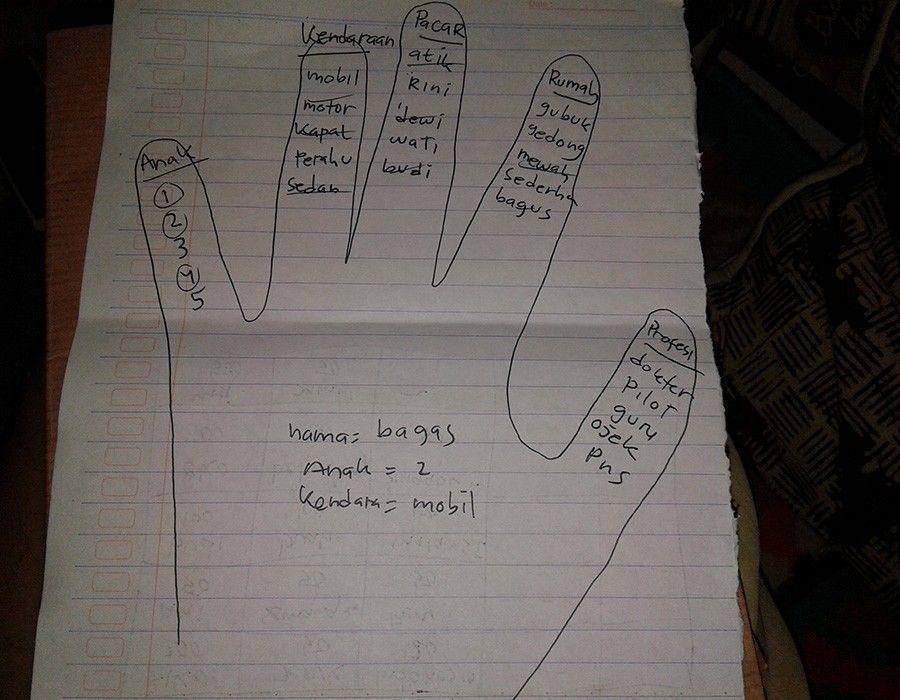 Anak
1
2
3
4
5
Kendaraan
mobil
motor
Kapat
Perahu
Sedan
Pacar
atik
Rini
dewi
wati
budi
Rumah
gubuk
gedong
mewah
Sederha
bagus
Profesi
dokter
Pilot
guru
ojek
pns
nama= bagas
Anak = 2
Kendara= mobil